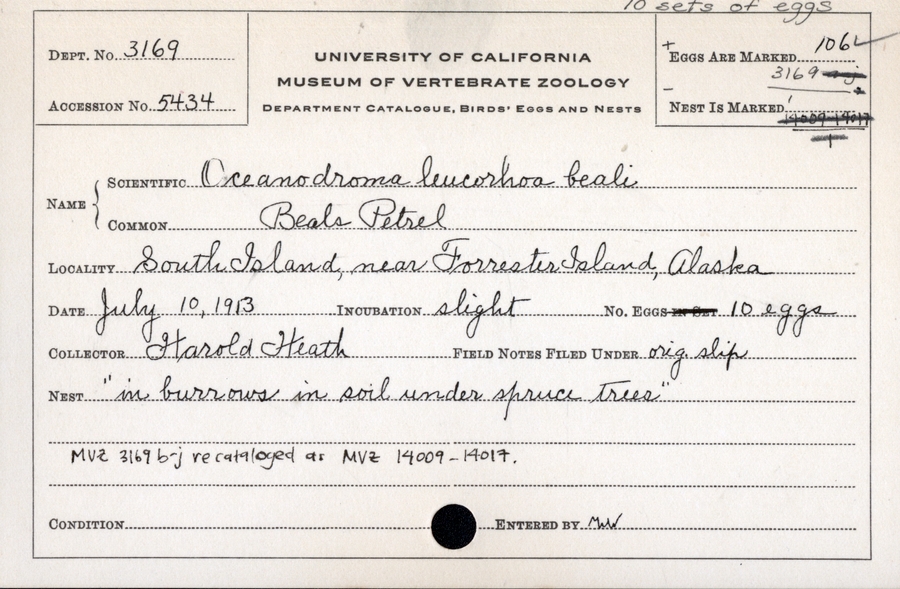 10 sets of eggs
DEPT. No. 3169
UNIVERSITY OF CALIFORNIA
MUSEUM OF VERTEBRATE ZOOLOGY
DEPARTMENT CATALOGUE, BIRDS' EGGS AND NESTS
ACCESSION No. 5434
EGGS ARE MARKED 106
3169 a-j
NEST IS MARKED
14009-14017
NAME
SCIENTIFIC Oceanodroma leucorhoa beali
COMMON Beals Petrel
LOCALITY South Island, near Forrester Island, Alaska
DATE July 10, 1913 INCUBATION slight NO. EGGS IN SET 10 eggs
COLLECTOR Harold Heath FIELD NOTES FILED UNDER orig. slip
NEST "in burrows in soil under spruce trees"
MVZ 3169 b-j recataloged as MVZ 14009-14017.
CONDITION ENTERED BY